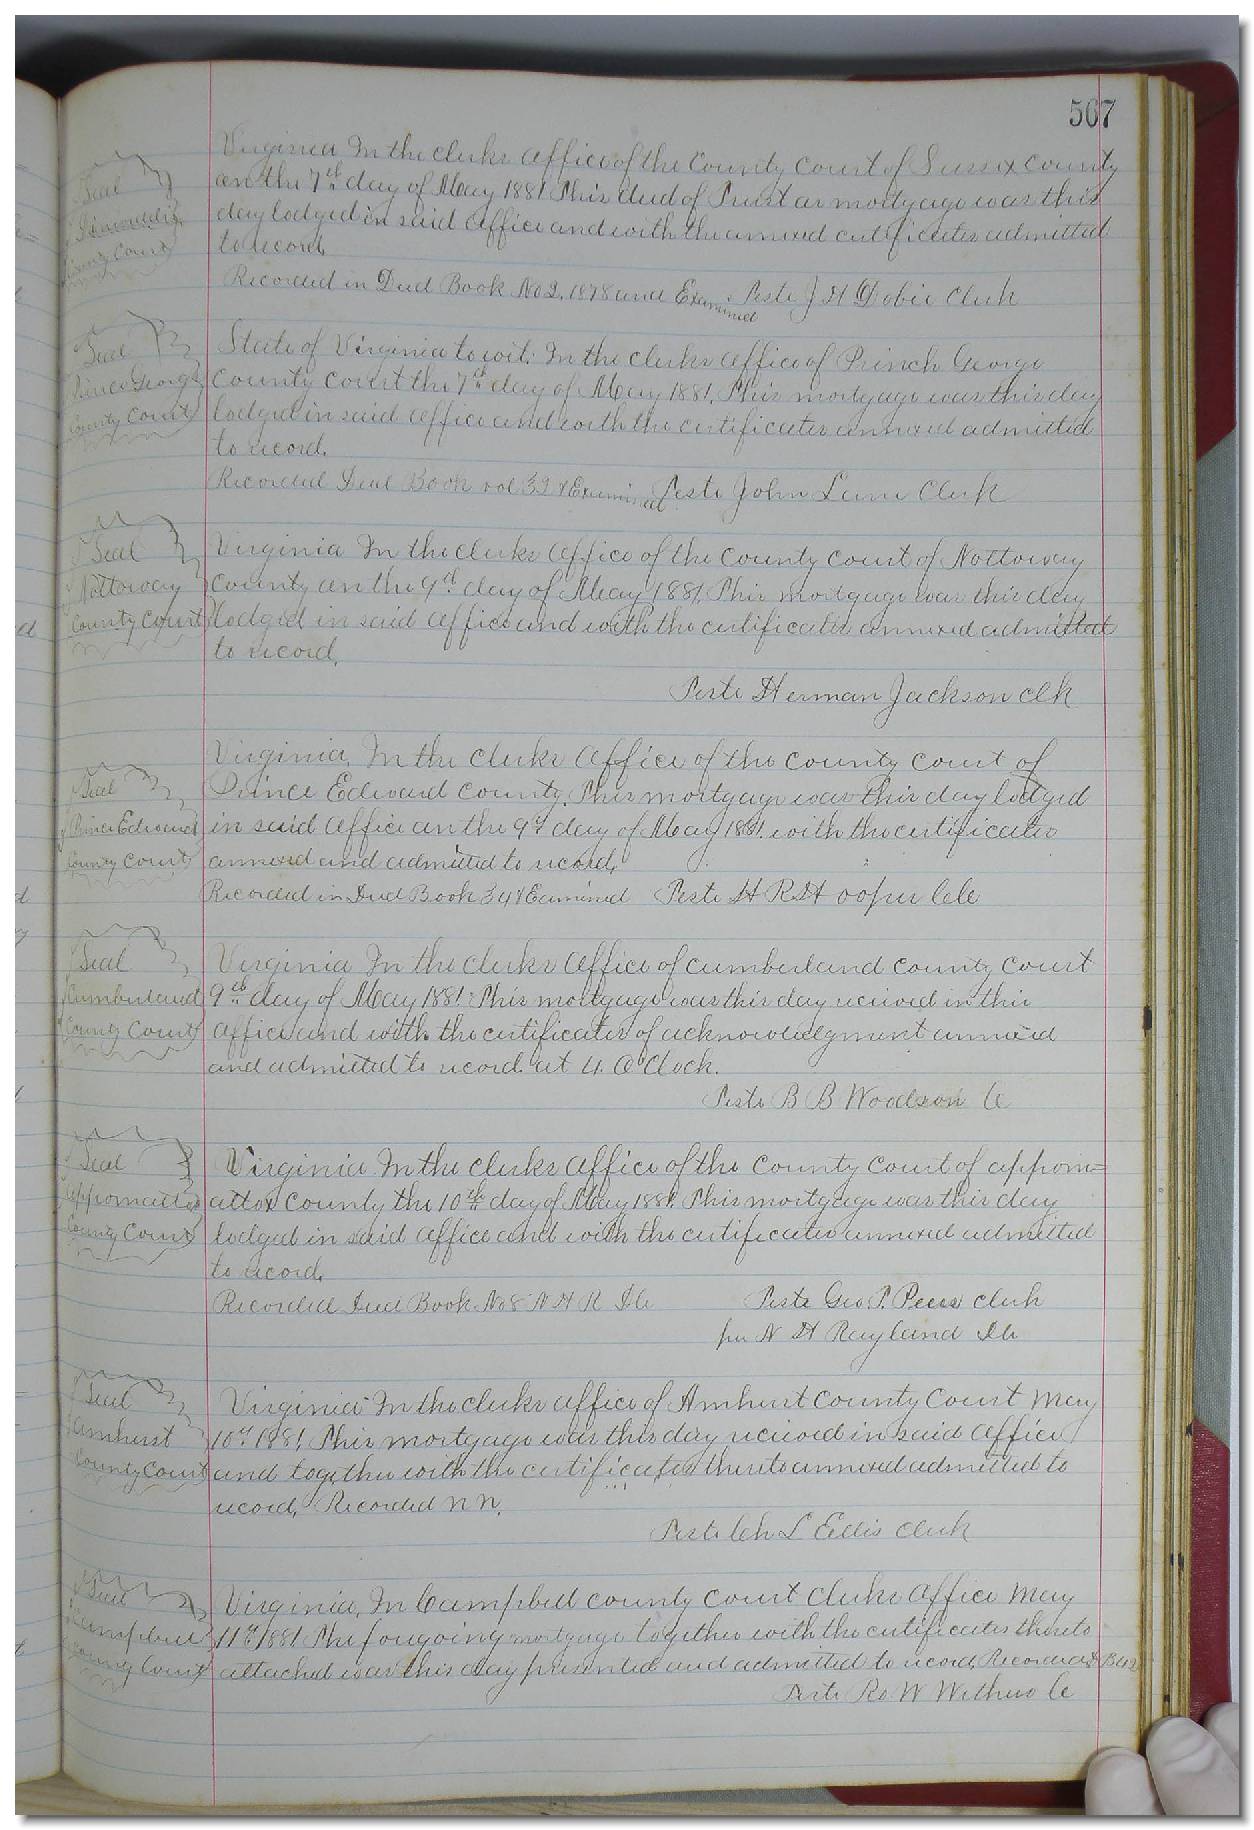 567
Virginia In the clerks office of the County Court of Sussex County
Seal
on the 7th day of May 1881 This deed of Trust or mortgage was this
day lodged in said office and with the annexed certificates admitted
County Court
to record,
Recorded in Deed Book No 2, 1878 and Examined Teste J H Dobie Clerk
Seal
State of Virginia to wit: In the clerks office of Princh George
Prince George
County Court the 7th day of May 1881, This mortgage was this day
County Court
lodged in said office and with the certificates annexed admitted
to record.
Recorded Deed Book vol 32 & Examined Teste John Lum Clerk
Seal
Virginia In the clerks office of the County Court of Nottoway
Nottoway
County on the 9th day of May 1881, This mortgage was this day
County Court
lodged in said office and with the certificates annexed admitted
to record,
Teste Herman Jackson clk
Virginia, In the clerks office of the County Court of
Seal
Prince Edward County, This mortgage was this day lodged
Prince Edward
in said office on the 9th day of May 1881, with the certificates
County Court
annexed and admitted to record,
Recorded in Deed Book 34 & Examined Teste H R Hooper Clk
Seal
Virginia In the clerks office of Cumberland County Court
Cumberland
9th day of May 1881: This mortgage was this day received in this
County Court
office and with the certificates of acknowledgment annexed
and admitted to record at 4 O'Clock.
Teste B B Woodson C
Seal
Virginia In the clerks office of the County Court of appom=
appomattox
attox County the 10th day of May 1881, This mortgage was this day
County Court
lodged in said office and with the certificates annexed admitted
to record,
Recorded Deed Book No 8 N H R Dc
Teste Geo P. Peers clerk
per N H Rayland Dc
Seal
Virginia In the clerks office of Amherst County Court May
Amherst
10th 1881, This mortgage was this day received in said office
County Court
and together with the certificates thereto annexed admitted to
record, Recorded n n,
Teste Ch L Ellis clerk
Seal
Virginia, In Campbell County Court Clerks Office May
Campbell
11th 1881 The foregoing mortgage together with the certificates thereto
County Court
attached was this day presented and admitted to record, Recorded
Teste Ro W Withers C